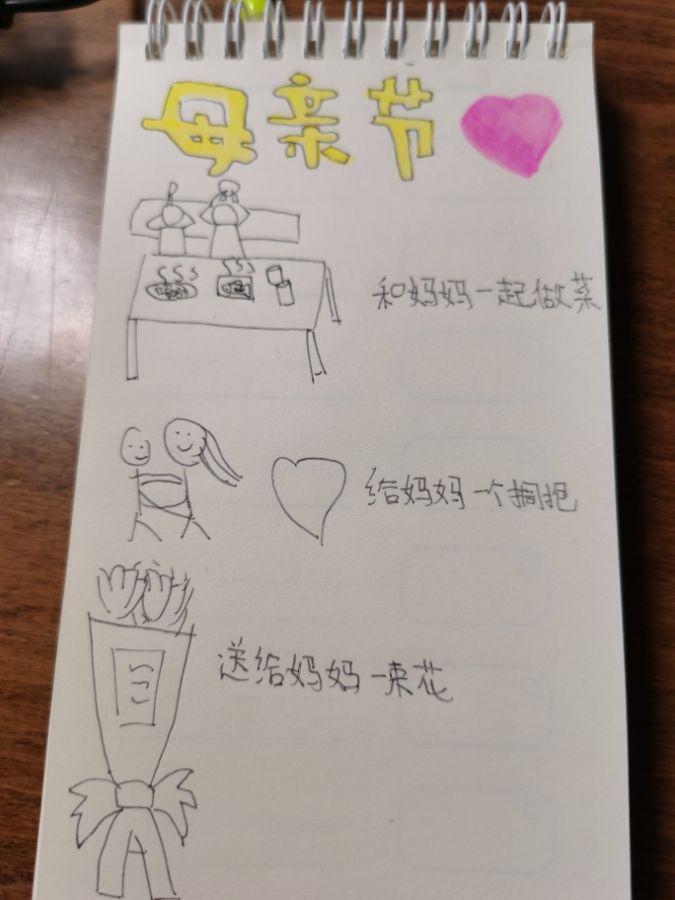 母亲节
和妈妈一起做菜
给妈妈一个拥抱
送给妈妈一束花